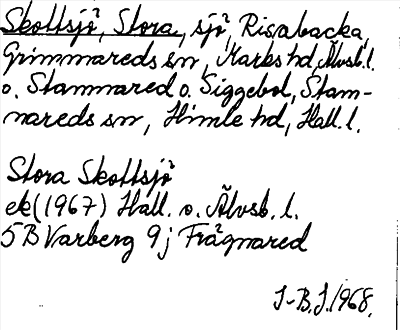 Skottsjö, Stora, sjö, Risabacka,
Grimmareds sn, Marks hd, Älvsb. l.
o. Stamnared o. Siggebol, Stam-
nareds sn, Himle hd, Hall. l.
Stora Skottsjö
ek (1967) Hall. o. Älvsb. l.
5B Varberg 9j Frägnared
J-B.J. 1968.